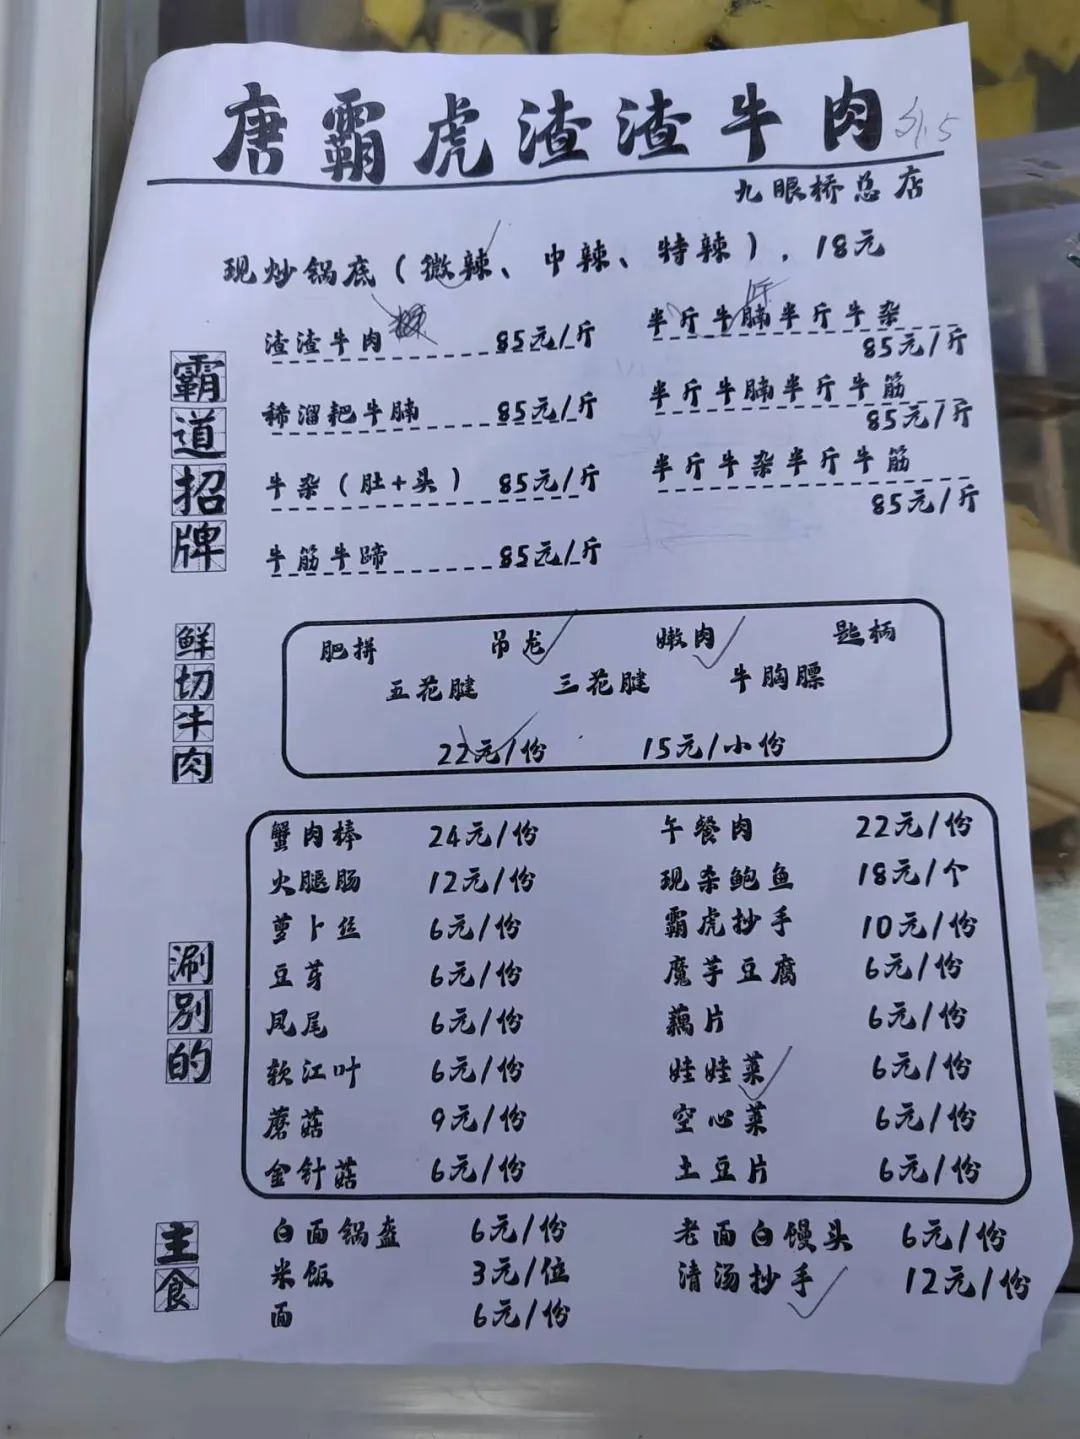 唐霸虎渣渣牛肉
九眼桥总店
现炒锅底（微辣、中辣、特辣），18元
霸道招牌
渣渣牛肉 85元/斤
半斤牛腩半斤牛杂 85元/斤
稀溜耙牛腩 85元/斤
半斤牛腩半斤牛筋 85元/斤
牛杂（肚+头） 85元/斤
半斤牛杂半斤牛筋 85元/斤
牛筋牛蹄 85元/斤
鲜切牛肉
肥拼 吊龙 嫩肉 匙柄
五花腱 三花腱 牛胸膘
22元/份 15元/小份
涮别的
蟹肉棒 24元/份 午餐肉 22元/份
火腿肠 12元/份 现杀鲍鱼 18元/个
萝卜丝 6元/份 霸虎抄手 10元/份
豆芽 6元/份 魔芋豆腐 6元/份
凤尾 6元/份 藕片 6元/份
软江叶 6元/份 娃娃菜 6元/份
蘑菇 9元/份 空心菜 6元/份
金针菇 6元/份 土豆片 6元/份
主食
白面锅盔 6元/份 老面白馒头 6元/份
米饭 3元/位 清汤抄手 12元/份
面 6元/份